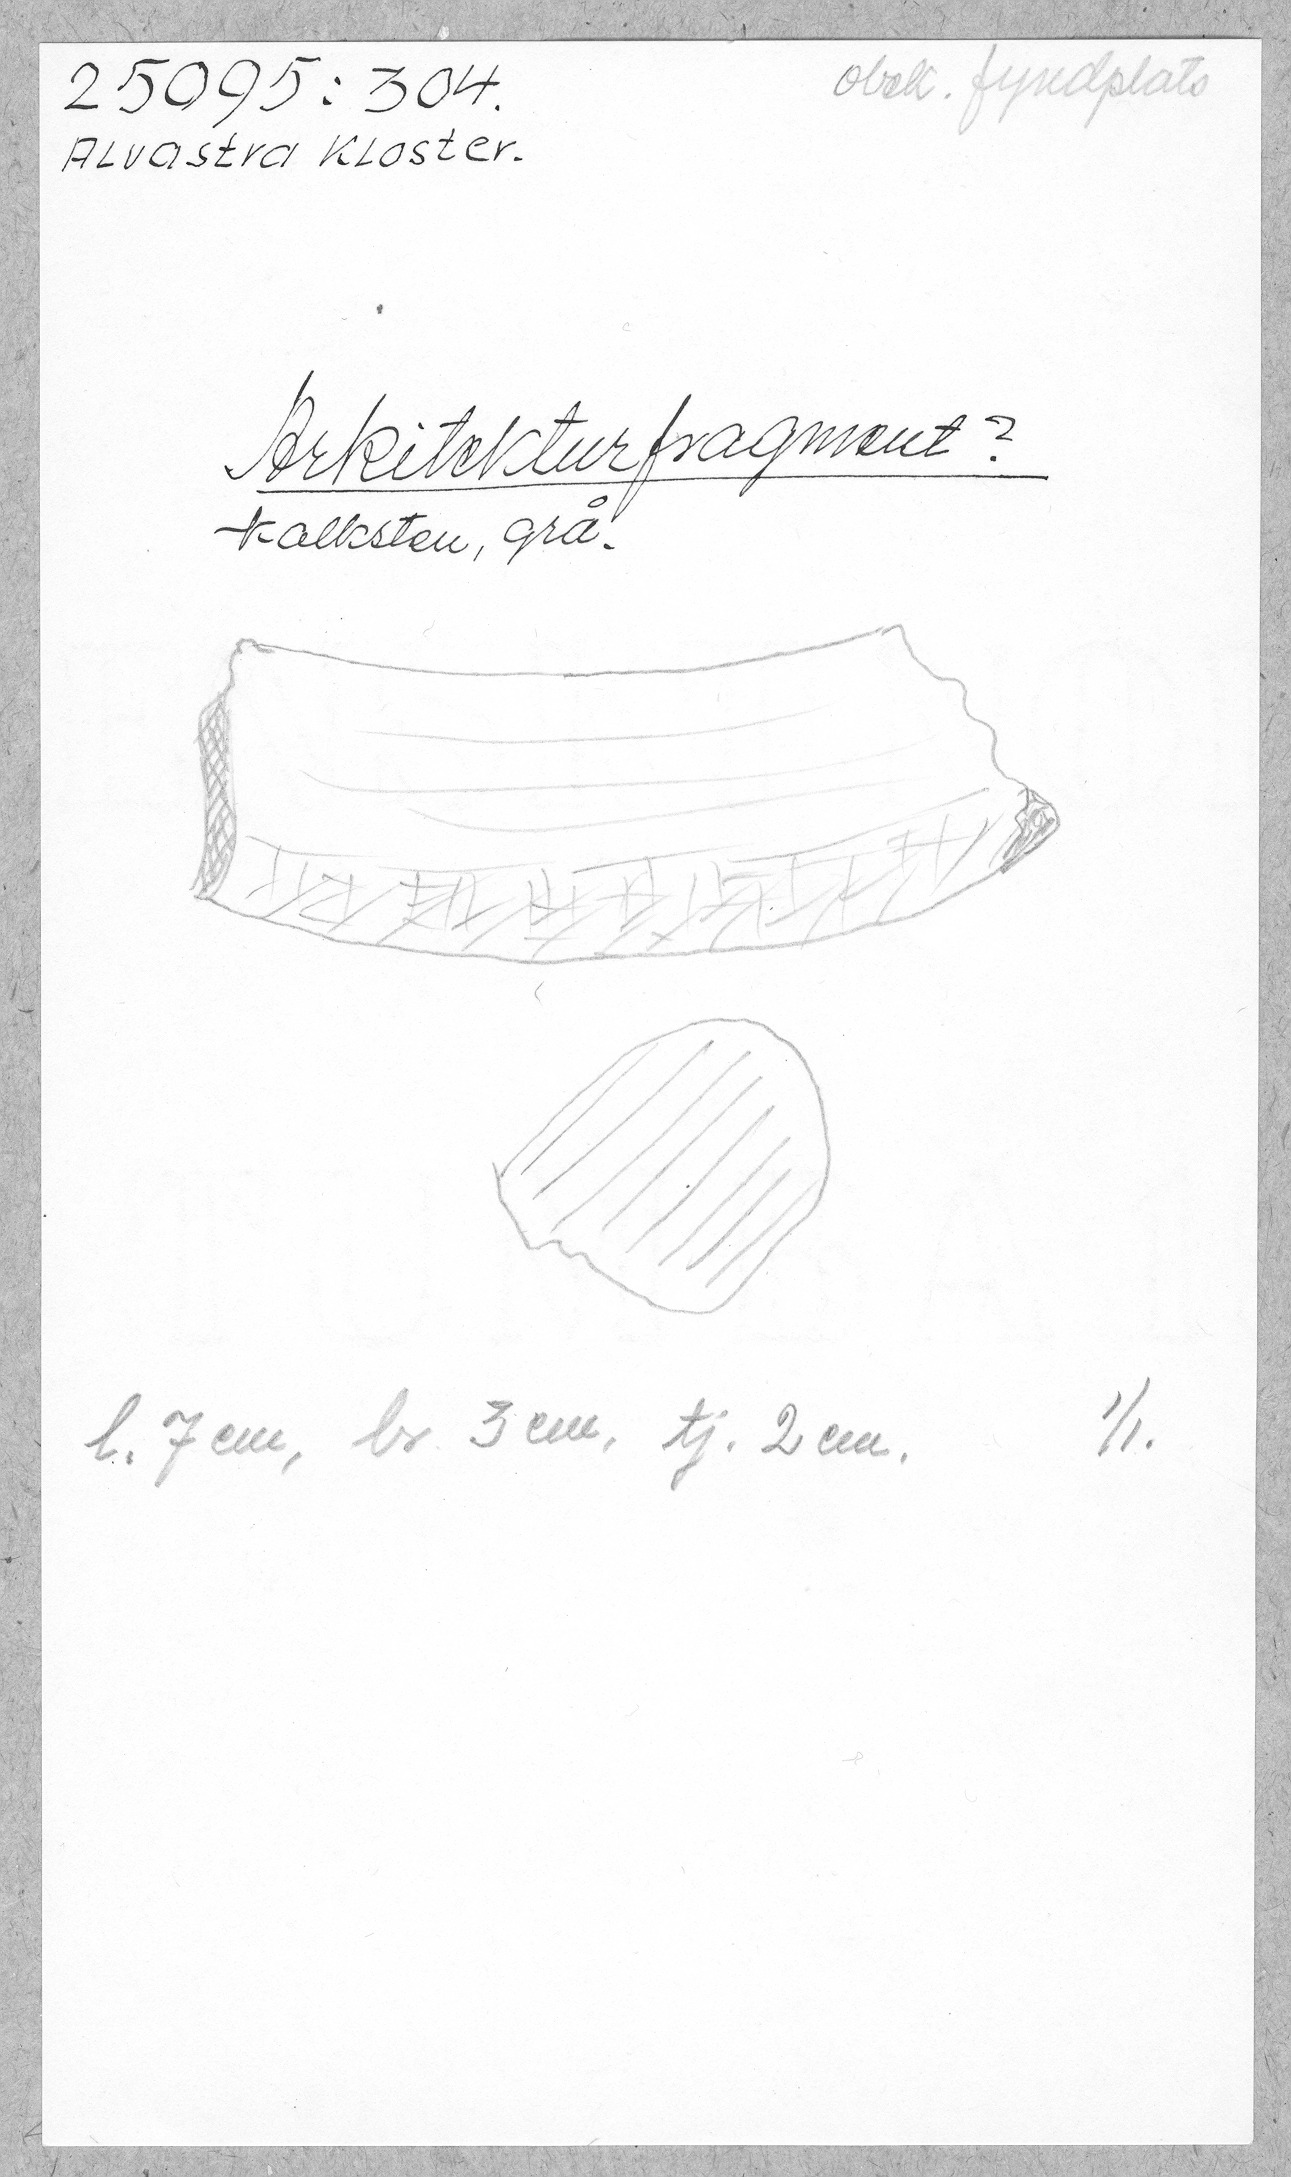 25095:304.
obek. fyndplats
Alvastra Kloster.
Arkitekturfragment?
kalksten, grå.
l. 7 cm, br 3 cm, tj. 2 cm. 1/1.